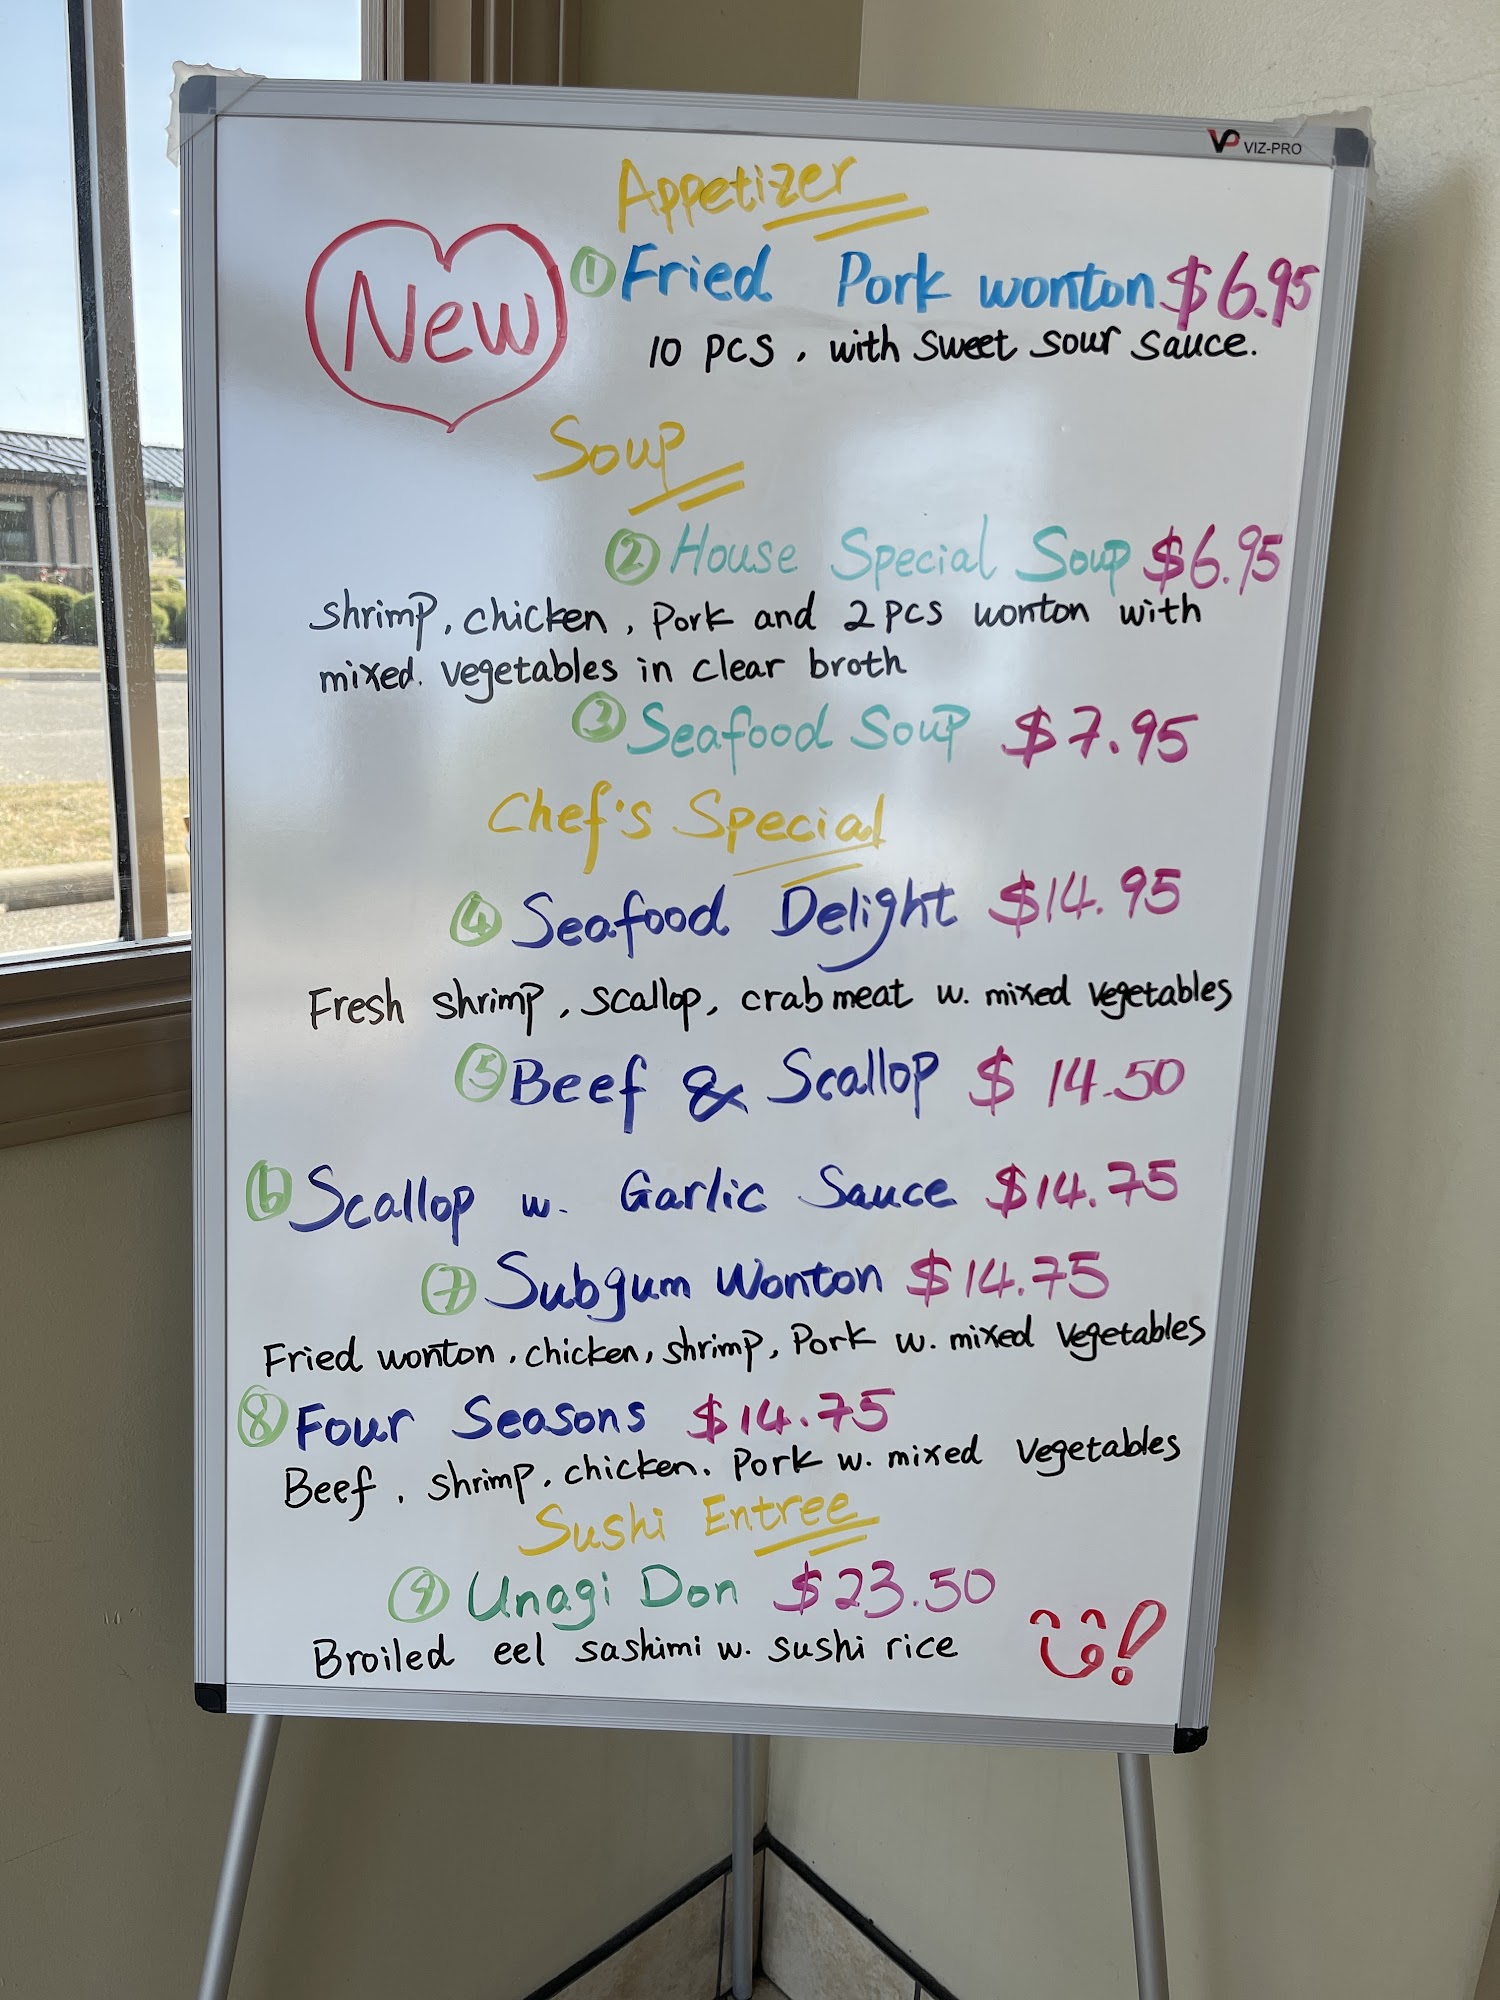 VP VIZ-PRO
Appetizer
New
① Fried Pork wonton $6.95
10 PCS, with sweet sour sauce.
Soup
② House Special Soup $6.95
shrimp, chicken, pork and 2 PCS wonton with
mixed. vegetables in clear broth
③ Seafood Soup $7.95
Chef's Special
④ Seafood Delight $14.95
Fresh shrimp, scallop, crab meat w. mixed vegetables
⑤ Beef & Scallop $14.50
⑥ Scallop w. Garlic Sauce $14.75
⑦ Subgum Wonton $14.75
Fried wonton, chicken, shrimp, Pork w. mixed vegetables
⑧ Four Seasons $14.75
Beef, shrimp, chicken. Pork w. mixed vegetables
Sushi Entree
⑨ Unagi Don $23.50
Broiled eel sashimi w. sushi rice